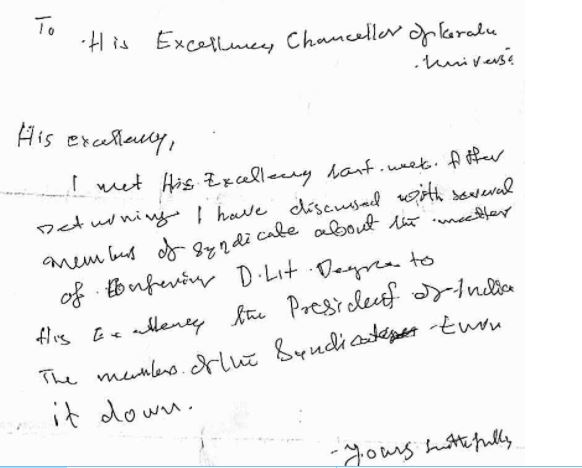 To
His Excellency Chancellor of Kerala
Universi
His excellency,
I met His Excellency last week. After
returning I have discussed with several
members of Syndicate about the matter
of Conferring D.Lit Degree to
His Excellency the President of India
The members of the Syndicate turn
it down.
Yours faithfully